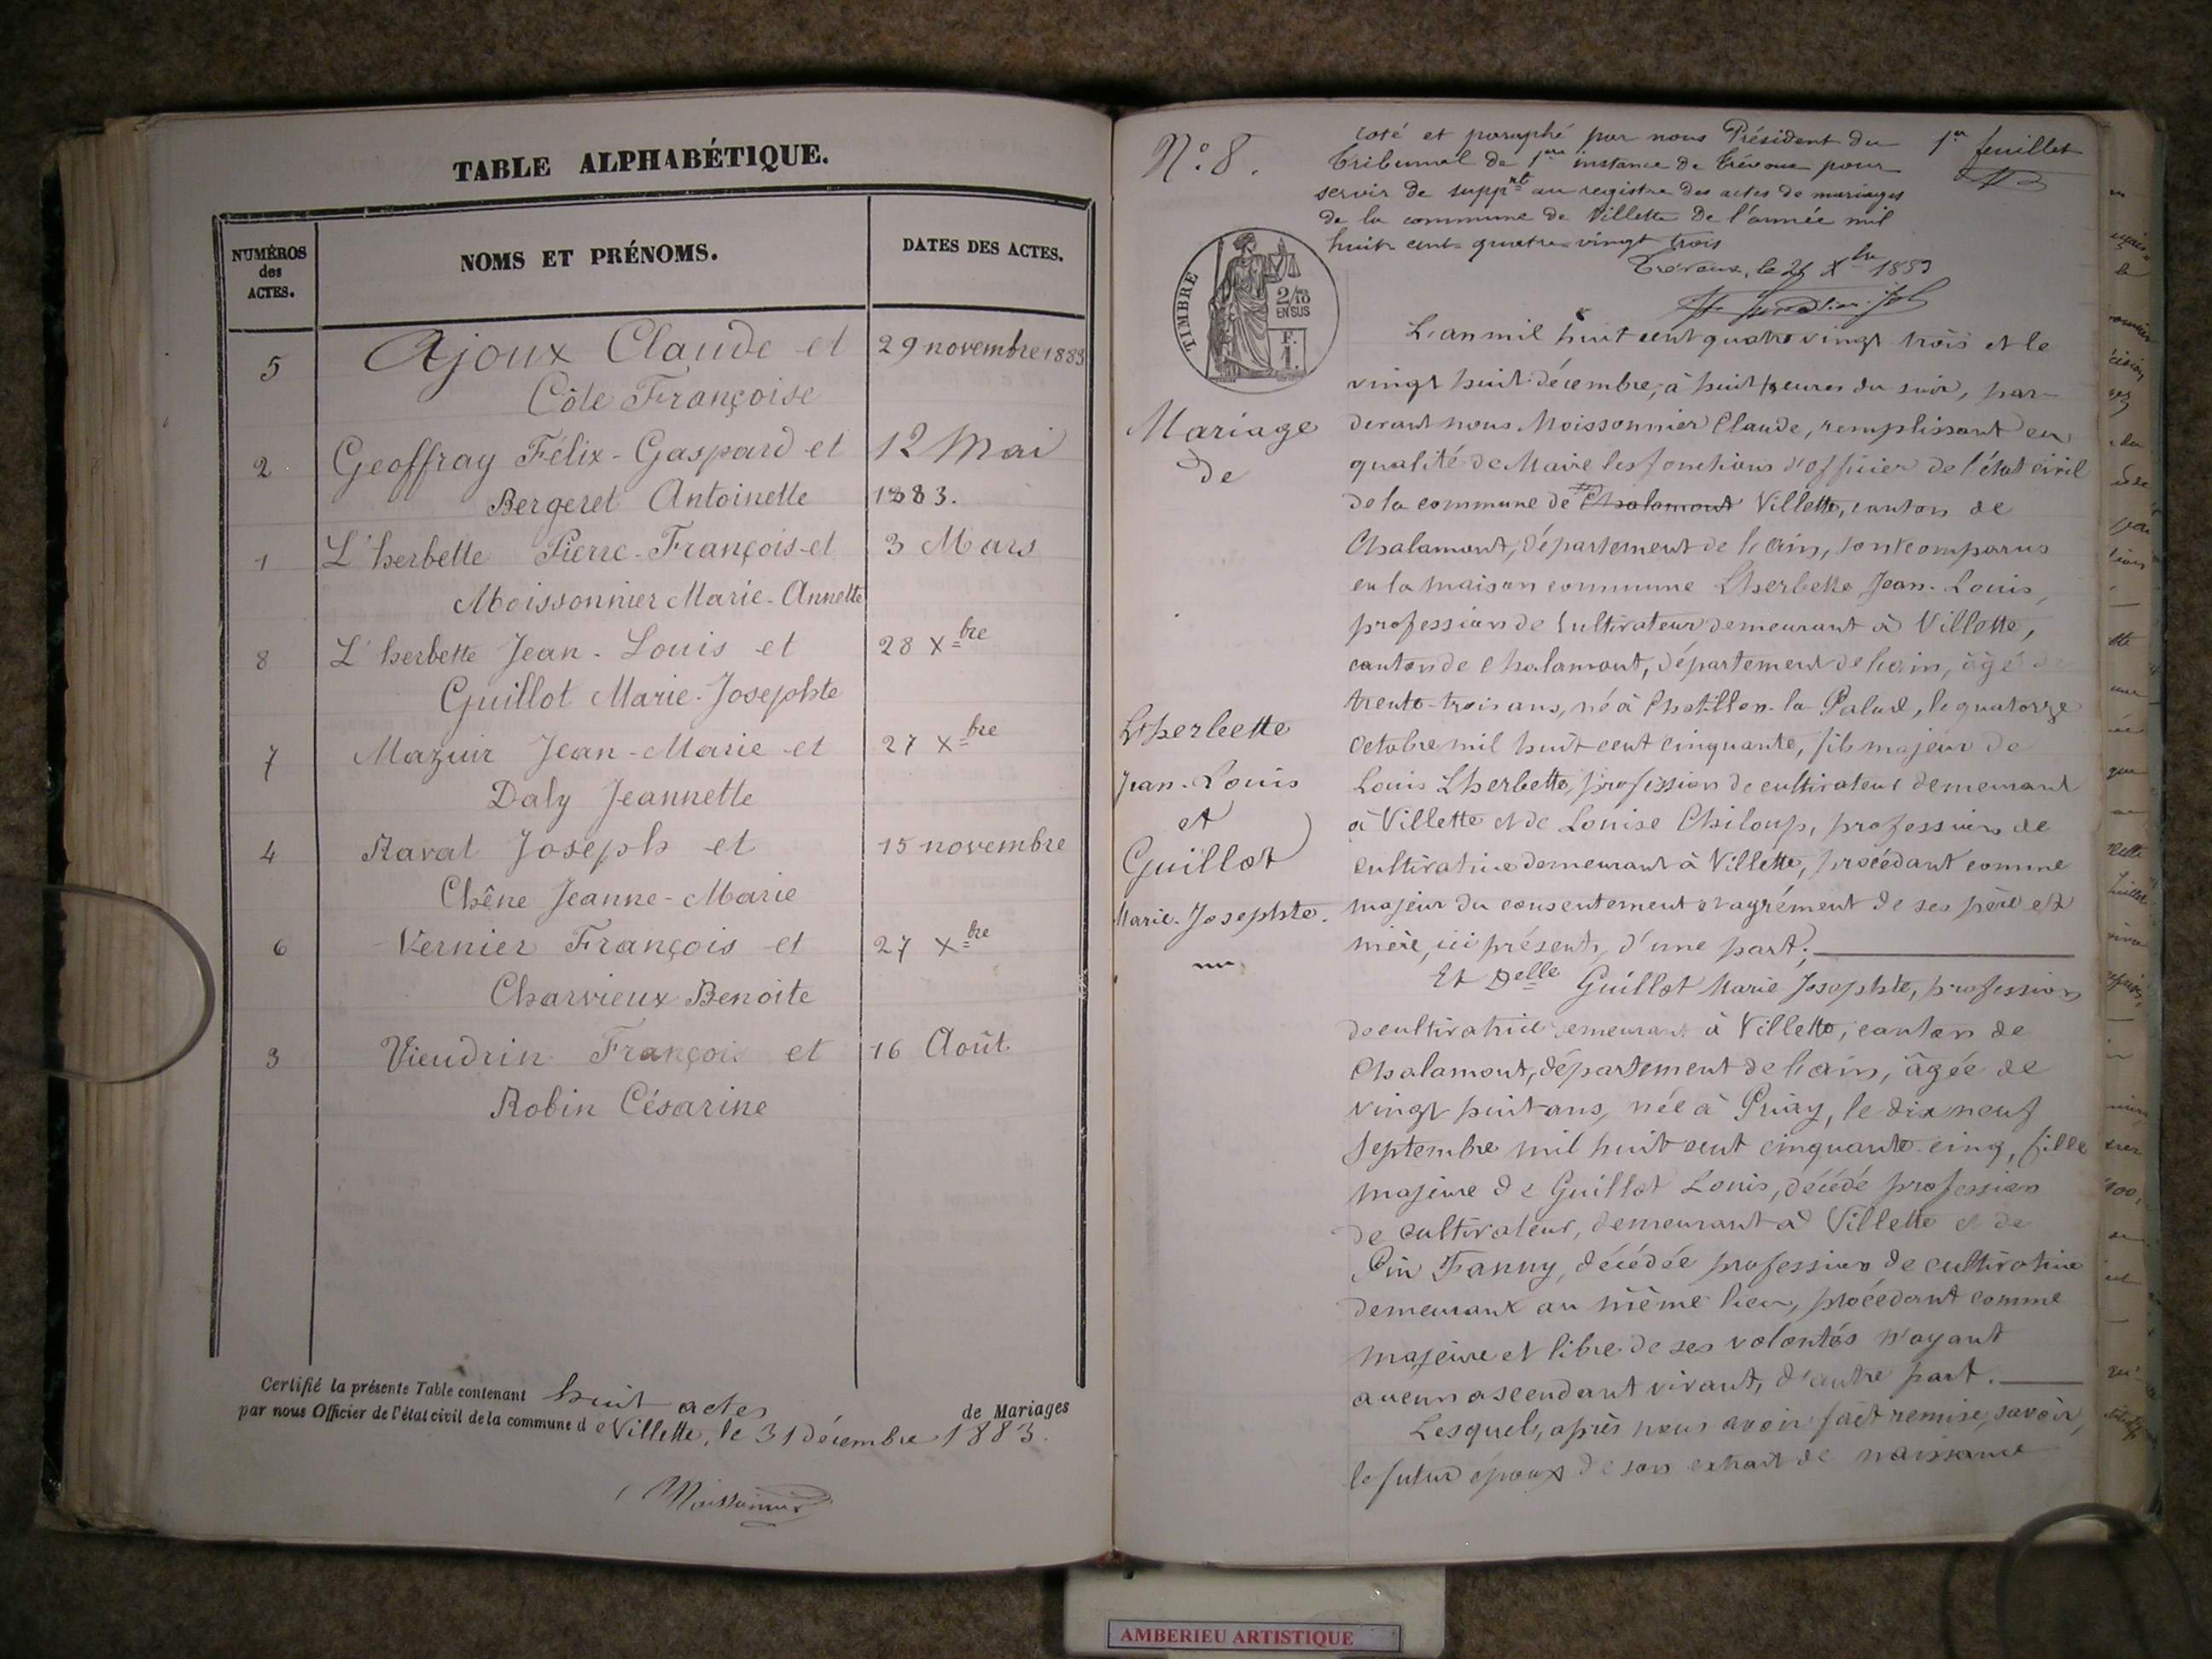 TABLE ALPHABÉTIQUE.
NUMÉROS des ACTES.
NOMS ET PRÉNOMS.
DATES DES ACTES.
5 Ajoux Claude et 29 novembre 1883
Côte Françoise
2 Geoffray Félix-Gaspard et 12 Mai
Bergeret Antoinette 1883.
1 L'herbette Pierre-François et 3 Mars
Moissonnier Marie-Annette
8 L'herbette Jean-Louis et 28 Xbre
Guillot Marie-Josephte
7 Mazuir Jean-Marie et 27 Xbre
Daly Jeannette
4 Ravat Joseph et 15 novembre
Chêne Jeanne-Marie
6 Vernier François et 27 Xbre
Charvieux Benoite
3 Vieudrin François et 16 Août
Robin Césarine
Certifié la présente Table contenant huit actes de Mariages
par nous Officier de l'état civil de la commune de Villette, le 31 Décembre 1883.
Moissonnier
N°. 8.
1er feuillet
coté et paraphé par nous Président du
Tribunal de 1ère instance de Trévoux pour
servir de suppnt au registre des actes de mariages
de la commune de Villette de l'année mil
huit cent quatre-vingt trois
Trévoux, le 21 Xbre 1883
TIMBRE
2/10 EN SUS
F. 1.
Mariage
de
Lherbette
Jean-Louis
et
Guillot
Marie-Josephte.
L'an mil huit cent quatre vingt trois et le
vingt huit décembre, à huit heures du soir, par-
devant nous Moissonnier Claude, remplissant en
qualité de Maire les fonctions d'officier de l'état civil
de la commune de Chalamont Villette, canton de
Chalamont, département de l'ain, sont comparus
en la maison commune Lherbette Jean-Louis,
profession de Cultivateur demeurant à Villette,
canton de Chalamont, département de l'ain, âgé de
trente-trois ans, né à Chatillon-la-Palud, le quatorze
Octobre mil huit cent cinquante, fils majeur de
Louis Lherbette, profession de cultivateur demeurant
à Villette et de Louise Chiloup, profession de
cultivatrice demeurant à Villette, procédant comme
majeur du consentement et agrément de ses père et
mère, ici présents, d'une part;
Et Delle Guillot Marie Josephte, profession
de cultivatrice demeurant à Villette, canton de
Chalamont, département de l'ain, âgée de
vingt huit ans, née à Priay, le dix neuf
Septembre mil huit cent cinquante-cinq, fille
majeure de Guillot Louis, décédé profession
de cultivateur, demeurant à Villette et de
Pin Fanny, décédée profession de cultivatrice
demeurant au même lieu, procédant comme
majeure et libre de ses volontés n'ayant
aucun ascendant vivant, d'autre part.
Lesquels, après nous avoir fait remise, savoir,
le futur époux de son extrait de naissance
AMBERIEU ARTISTIQUE